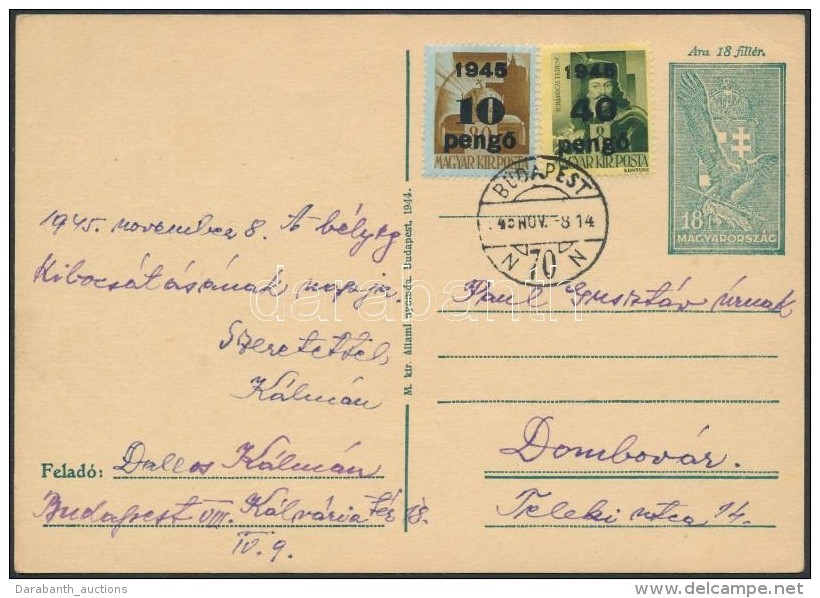 Ára 18 fillér.
1945
10
pengő
80
MAGYAR KIR. POSTA
1945
40
pengő
8
MAGYAR KIR. POSTA
18 f
MAGYARORSZÁG
BUDAPEST
45 NOV. -8 14
N 70 N
1945. november 8. A bélyeg
Kibocsátásának napja.
Szeretettel,
Kálmán
Feladó: Dallos Kálmán
Budapest VIII. Kálvária tér 18.
IV. 9.
M. kir. állami nyomda. Budapest, 1944.
Paul Gusztáv úrnak
Dombovár.
Teleki utca 14.
darabanth
Darabanth_auctions
delcampe.net